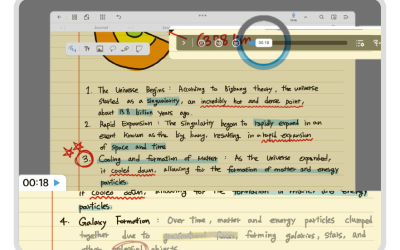 6378 km
00:18
1. The Universe Begins : According to Bigbang theory, the universe
started as a Singularity, an incredibly hot and dense point,
about 13.8 billion years ago.
2. Rapid Expansion : The Singularity began to rapidly expand in an
event known as the big bang, resulting in a rapid expansion
of space and time
3. Cooling and formation of Matter : As the Universe expanded,
it cooled down, allowing for the formation of matter and energy
particles.
00:18
it cooled down, allowing for the formation of matter and energy
particles.
4. Galaxy Formation : Over Time, matter and energy particles clumped
together due to gravitational forces, forming galaxies, stars, and
other celestial objects